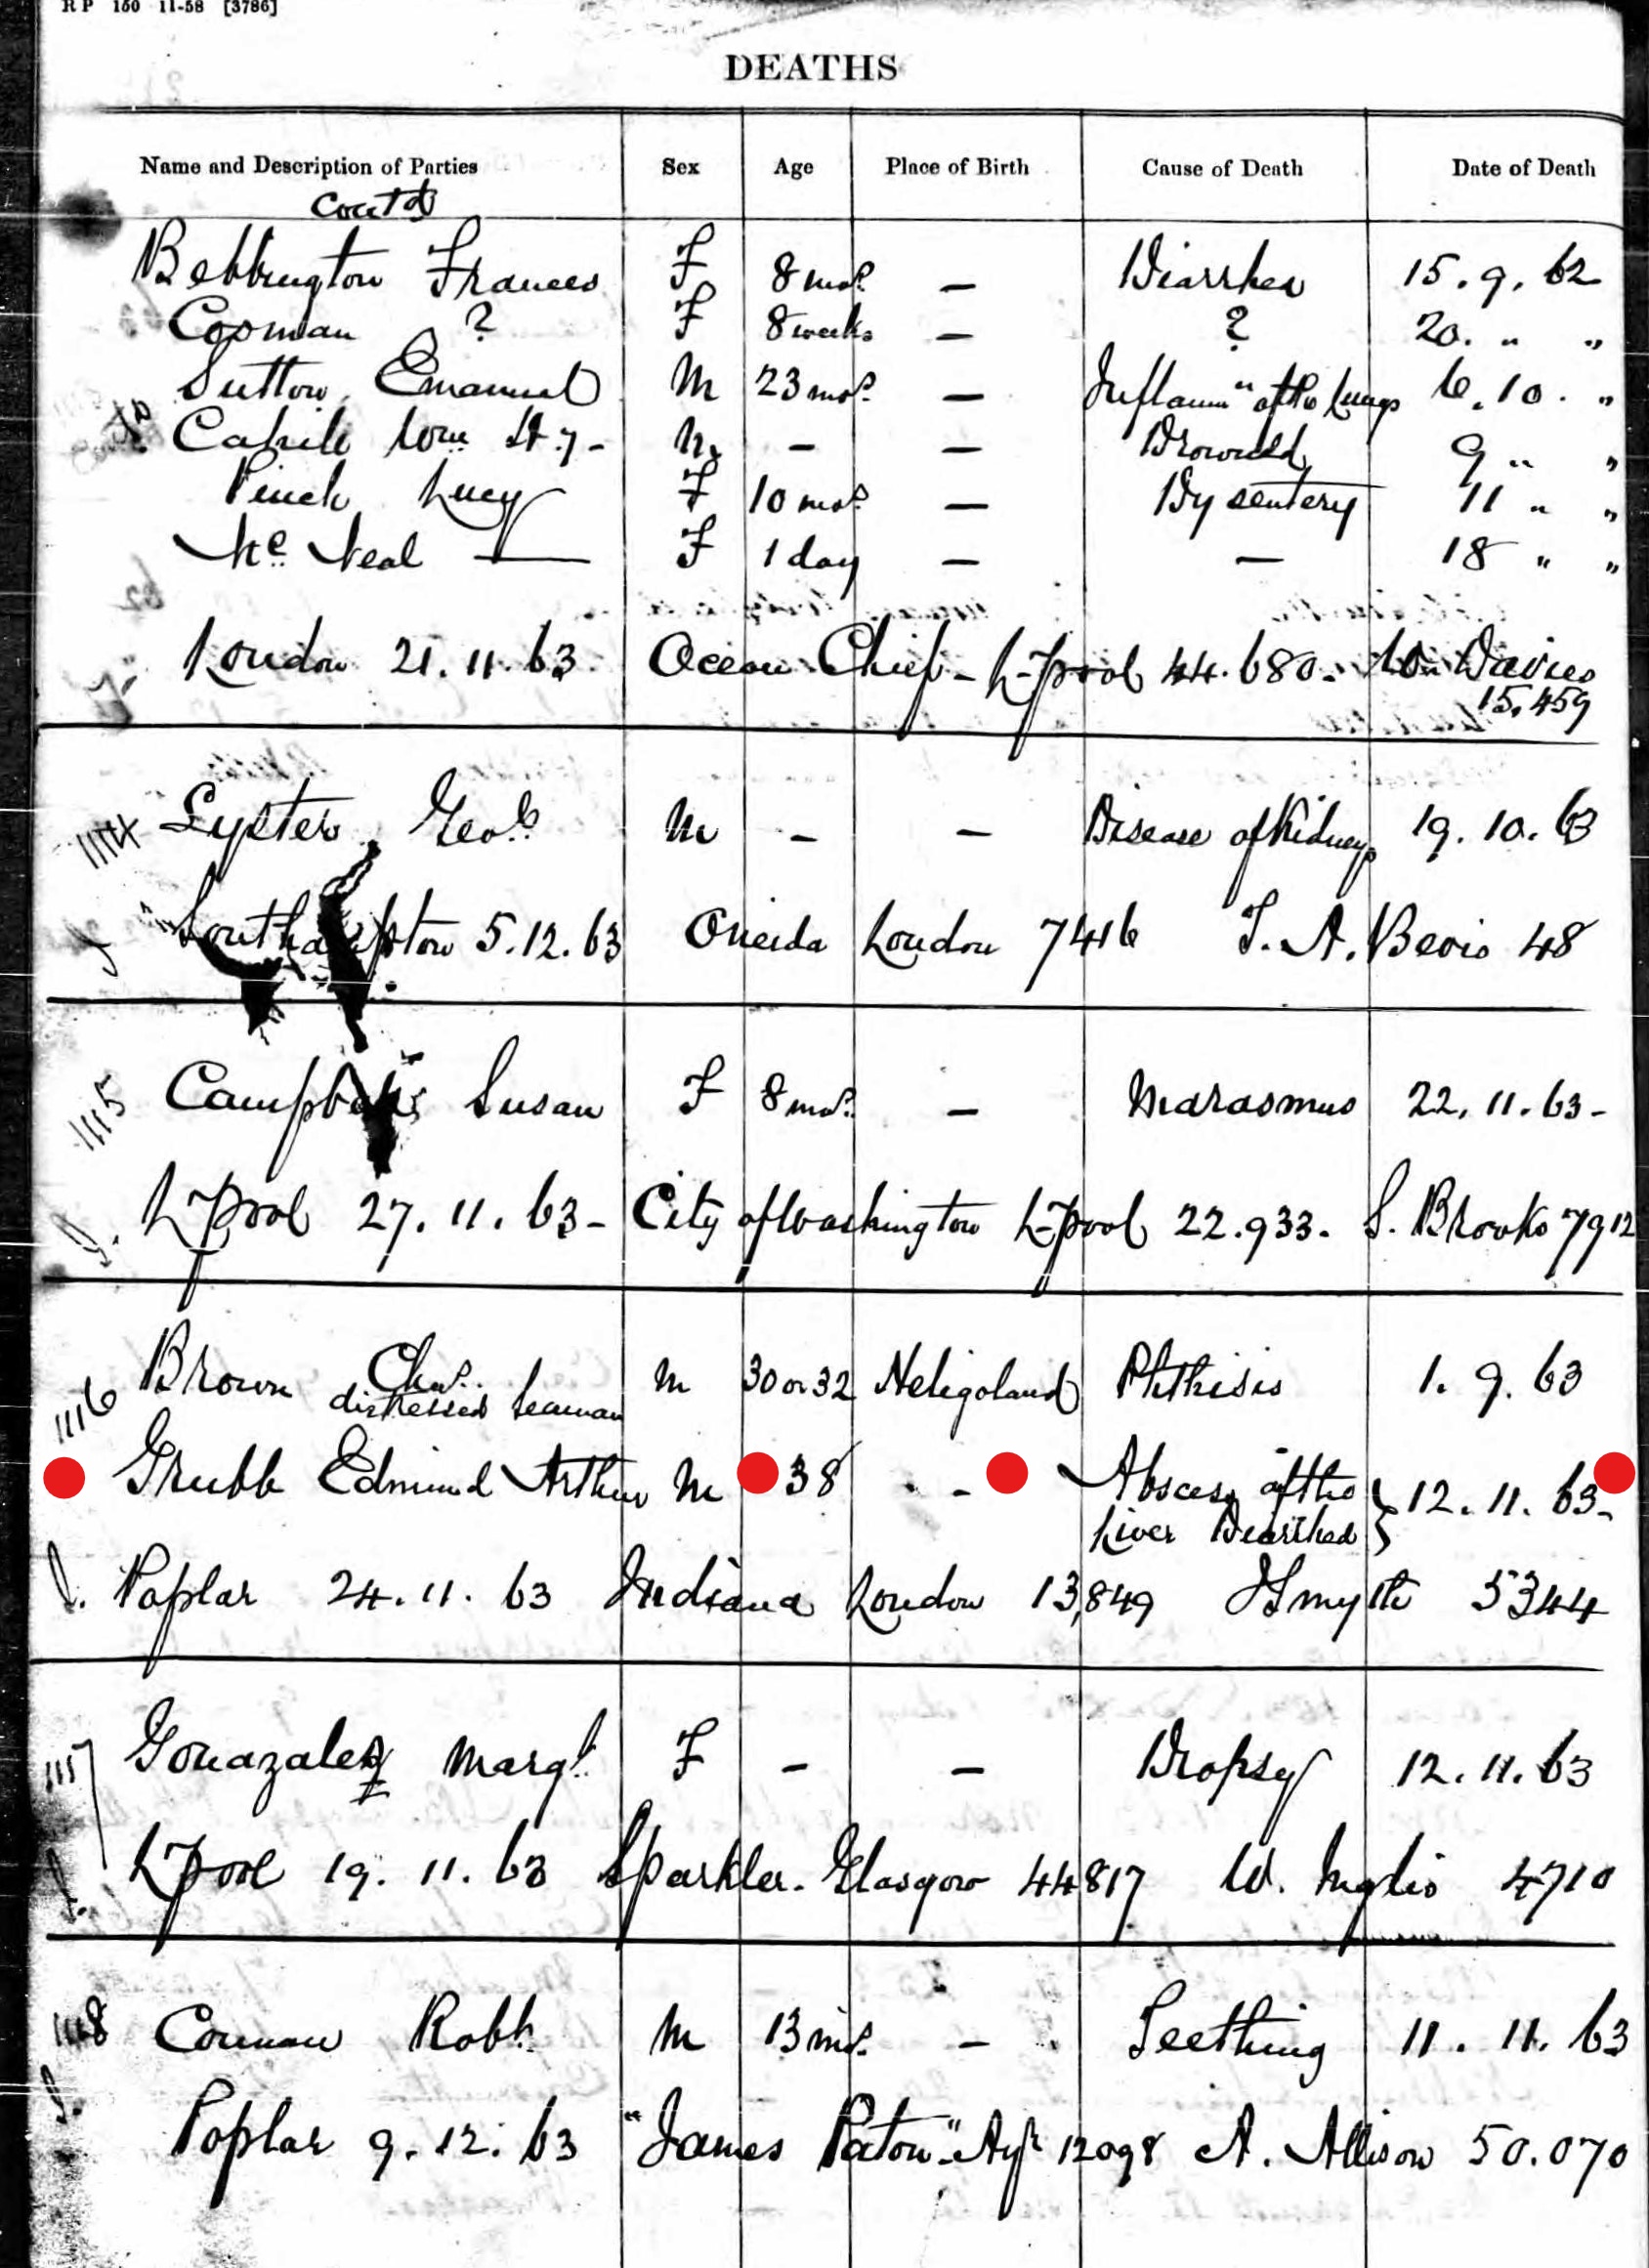 R P 150 11-58 [3786]
DEATHS
Name and Description of Parties Sex Age Place of Birth Cause of Death Date of Death
Contd
Bebbington Frances F 8 mos. — Diarrhea 15. 9. 62
Cosman ? F 8 weeks — ? 20. " "
Sutton, Emanuel M 23 mos. — Inflamn of the Lungs 6. 10. "
Cahill Wm Hy - M - — Drowned 9 " "
Pinch Lucy F 10 mos. — Dysentery 11 " "
Mc Neal — F 1 day — — 18 " "
London 21. 11. 63. Ocean Chief - L-pool 44.680. W. Davies
15.459
1114 Lyster, Geo. M - — Disease of Kidneys 19. 10. 63
Southampton 5. 12. 63 Oneida London 7416 T. A. Bevis 48
1115 Campbell Susan F 8 mos. — Marasmus 22. 11. 63 -
L-pool 27. 11. 63 - City of Washington L-pool 22.933. S. Brooks 7912
1116 Brown Chas. M 30 or 32 Heligoland Phthisis 1. 9. 63
distressed Seaman
Grubb Edmund Arthur M 38 - Abscess of the } 12. 11. 63 -
Liver Diarrhea
Poplar 24. 11. 63 Indiana London 13,849 J Smyth 5344
1117 Gonazalez Margt. F - — Dropsy 12. 11. 63
L-pool 19. 11. 63 Sparkler - Glasgow 44817 W. Inglis 4710
1118 Robt. M 13 mos. — Teething 11. 11. 63
Poplar 9. 12. 63 "James Paton" - Ayr 12098 A. Allison 50.070